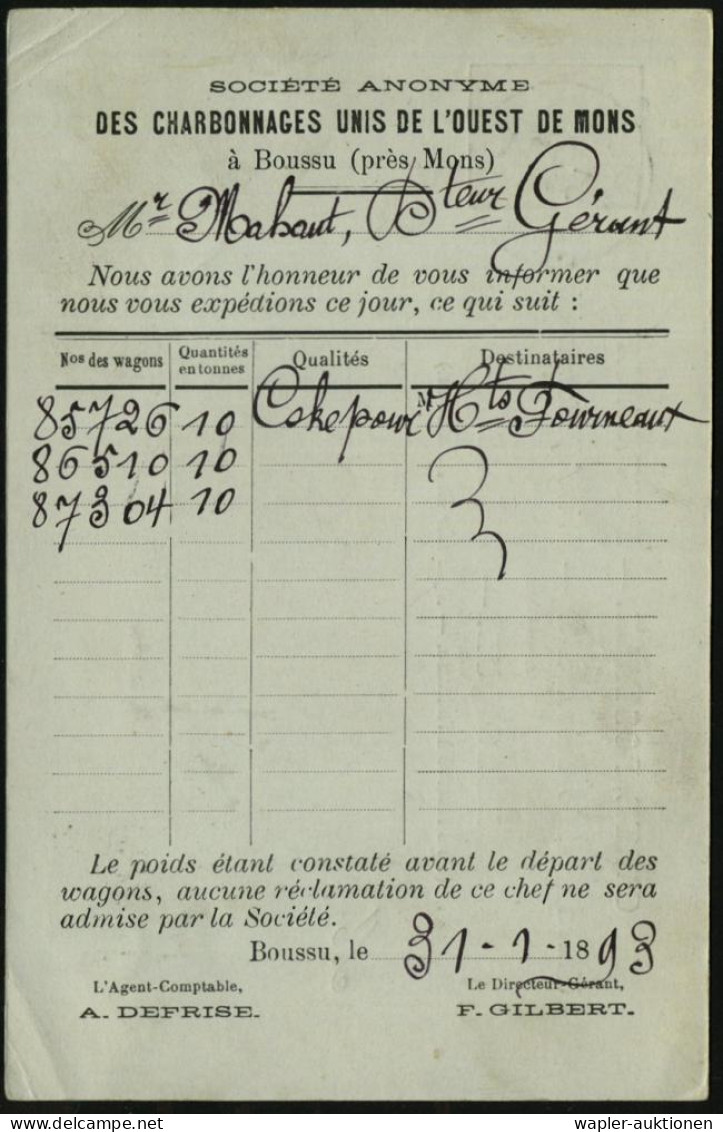 SOCIÉTÉ ANONYME
DES CHARBONNAGES UNIS DE L'OUEST DE MONS
à Boussu (près Mons)
Mr Mahaut, Dteur Gérant
Nous avons l'honneur de vous informer que
nous vous expédions ce jour, ce qui suit :
Nos des wagons Quantités en tonnes Qualités Destinataires
85726 10 Coke pour M Hts Fourneaux
86510 10
87304 10
Le poids étant constaté avant le départ des
wagons, aucune réclamation de ce chef ne sera
admise par la Société.
Boussu, le 31-1-1893
L'Agent-Comptable, Le Directeur-Gérant,
A. DEFRISE. F. GILBERT.
wapler-auktionen